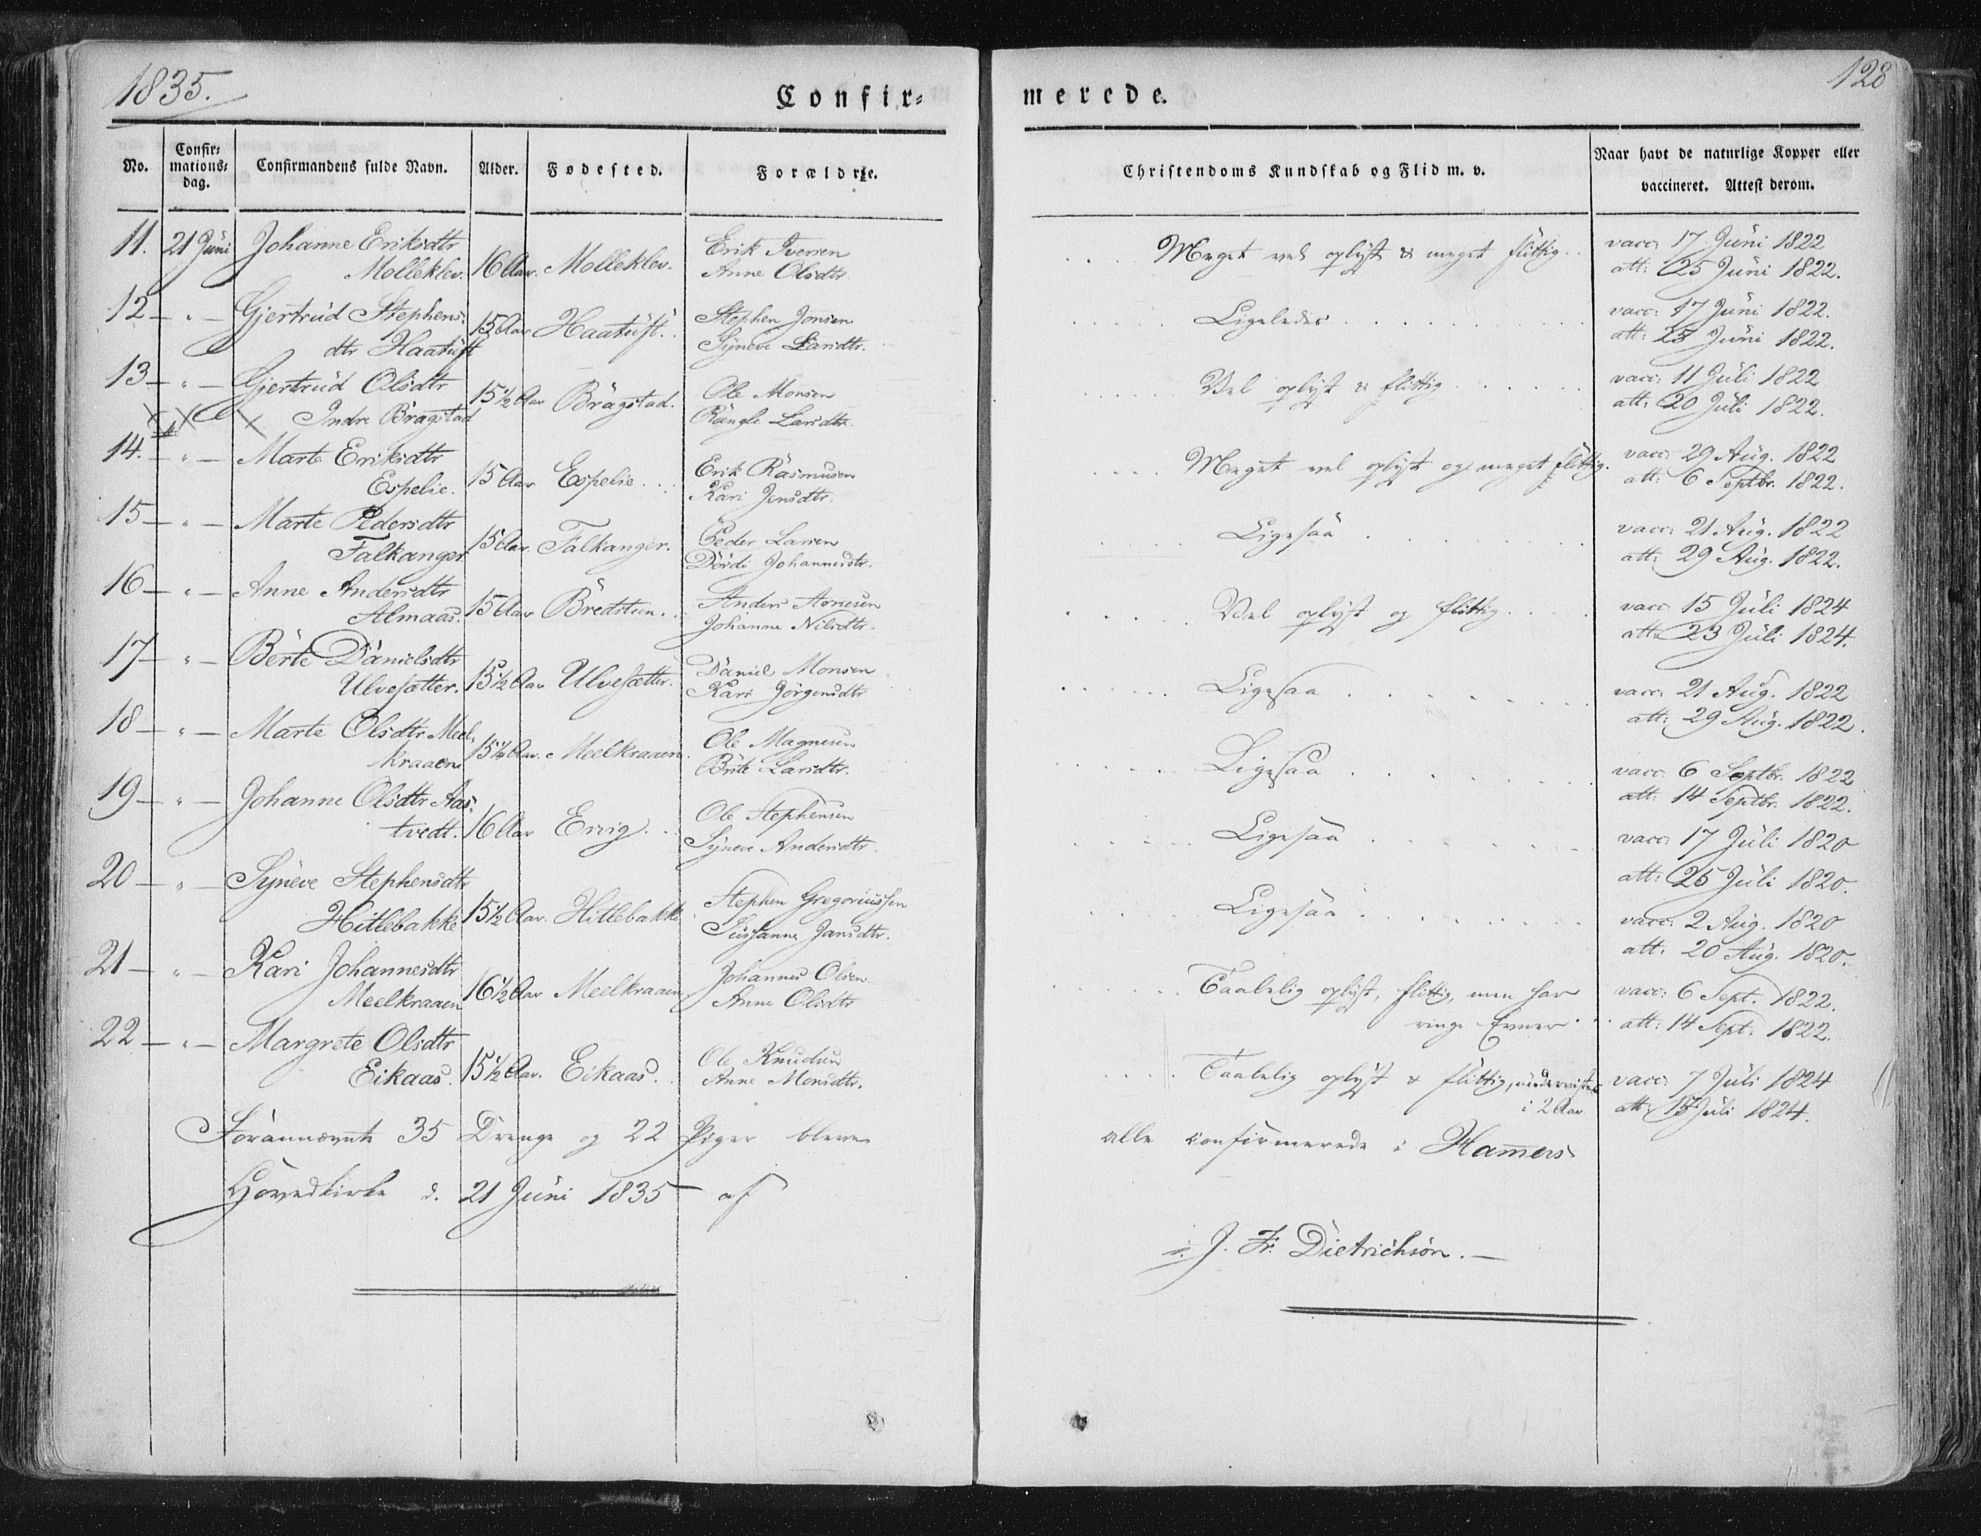 1835.
Confir=
merede.
128
No.
Confir=
mations=
dag.
Confirmandens fulde Navn.
Alder.
Fødested.
Forældre.
Christendoms Kundskab og Flid m. v.
Naar havt de naturlige Kopper eller
vaccineret. Attest derom.
11. 21 Juni Johanne Eriksdtr
Molleklev. 16 Aar. Molleklev. Erik Iversen
Anne Olsdtr.
Meget vel oplyst & meget flittig. vacc: 17 Juni 1822
att: 25 Juni 1822.
12 — " — Gjertrud Stephens=
dtr Haatuft 15 Aar Haatuft. Stephen Jonsen
Syneve Larsdtr.
Ligeledes vacc: 17 Juni 1822.
att: 25 Juni 1822.
13 — " — Gjertrud Olsdtr
Indre Bragstad 15½ Aar Bragstad. Ole Monsen
Rangle Larsdtr.
Vel oplyst & flittig vacc: 11 Juli 1822
att: 20 Juli 1822.
14. — " — Marte Eriksdtr
Espelie. 15 Aar Espelie. Erik Rasmusen
Kari Jensdtr.
Meget vel oplyst og meget flittig. vacc: 29 Aug. 1822
att: 6 Septbr. 1822.
15 — " — Marte Pedersdtr
Falkanger 15 Aar. Falkanger. Peder Larsen
Dordi Johannesdtr.
Ligesaa vacc: 21 Aug. 1822
att: 29 Aug. 1822.
16 — " — Anne Andersdtr
Almaas. 15 Aar Bredsteen. Anders Arnesen
Johanne Nilsdtr.
Vel oplyst og flittig vacc: 15 Juli 1824
att: 23 Juli 1824.
17 — " — Berte Danielsdtr
Ulvesætter. 15½ Aar Ulvesætter. Daniel Monsen
Kari Jörgensdtr
Ligesaa vacc: 21 Aug. 1822
att: 29 Aug. 1822.
18 — " — Marte Olsdtr Meel=
kraaen 15½ Aar. Meelkraaen. Ole Magnesen
Brite Larsdtr.
Ligesaa vacc: 6 Septbr. 1822
att: 14 Septbr. 1822.
19 — " — Johanne Olsdtr Aas=
tvedt. 16 Aar Ervig. Ole Stephensen
Syneve Andersdtr
Ligesaa vacc: 17 Juli 1820
att: 25 Juli 1820.
20 — " — Syneve Stephensdtr
Hitlebakke 15½ Aar. Hitlebakke Stephen Gregoriussen
Sussanne Jansdtr.
Ligesaa vacc: 2 Aug. 1820
att. 20 Aug. 1820.
21 — " — Kari Johannesdtr
Meelkraaen 16½ Aar Meelkraaen Johannes Olsen
Anne Olsdtr
Taalelig oplyst, flittig, men har
ringe Evner vacc: 6 Sept. 1822.
att: 14 Sept: 1822.
22 — " — Margrete Olsdtr
Eikaas. 15½ Aar. Eikaas. Ole Knudsen
Anne Monsdtr.
Taalelig oplyst & flittig, undervist
i 2 Aar vacc: 7 Juli 1824
att: 15 Juli 1824.
Forannævnte 35 Drenge og 22 Piger bleve alle confirmerede i Hamers
Hovedkirke d. 21 Juni 1835 — af
J. Fr. Dietrichson. —